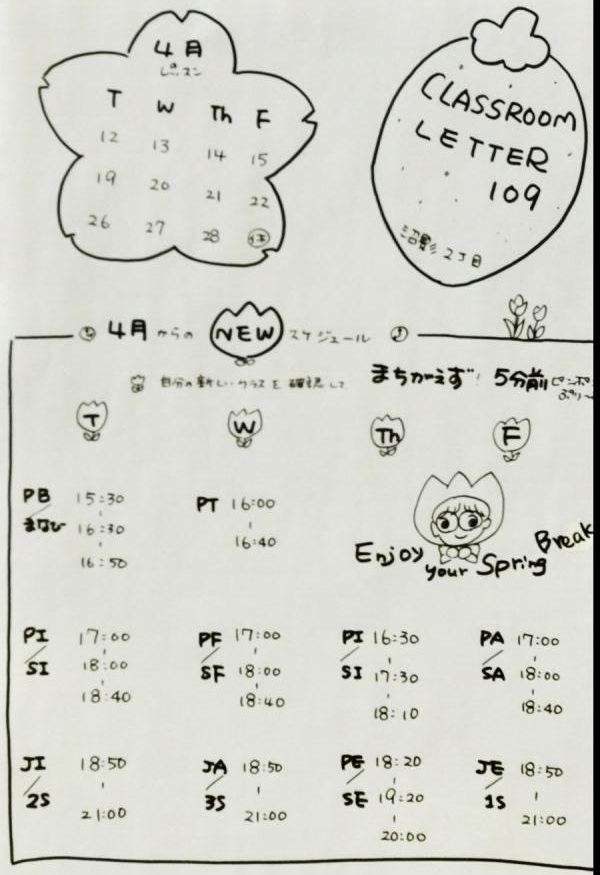 4月
レッスン
T W Th F
12 13 14 15
19 20 21 22
26 27 28 休
CLASSROOM
LETTER
109
沼影2丁目
4月からの NEW スケジュール
自分の新しいクラスを確認して まちがえず! 5分前 ピンポン
T W Th F
PB/まなび 15:30 - 16:30 - 16:50
PT 16:00 - 16:40
Enjoy your Spring Break
PI/SI 17:00 - 18:00 - 18:40
PF/SF 17:00 - 18:00 - 18:40
PI/SI 16:30 - 17:30 - 18:10
PA/SA 17:00 - 18:00 - 18:40
JI/2S 18:50 - 21:00
JA/3S 18:50 - 21:00
PE/SE 18:20 - 19:20 - 20:00
JE/1S 18:50 - 21:00